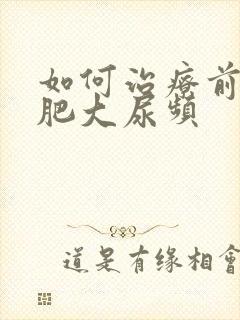 如何治疗前
肥大尿频
道是有缘相會